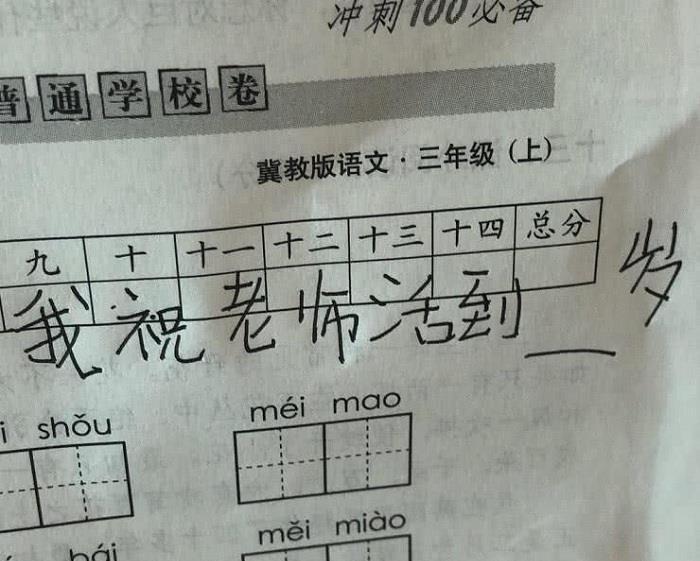 冲刺100必备
普通学校卷
冀教版语文·三年级（上）
九 十 十一 十二 十三 十四 总分
我祝老师活到___岁
shǒu méi mao
bái měi miào